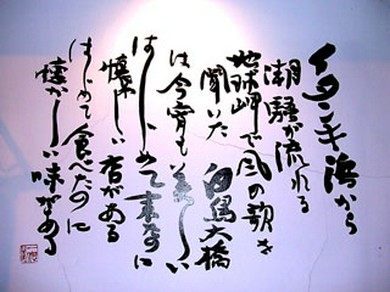 イタンキ浜から
潮騒が流れる
地球岬で風の歌を
聞いた 白鳥大橋
は今宵も美しい
はじめて来たのに
懐かしい香がある
はじめて食べたのに
懐かしい味がある